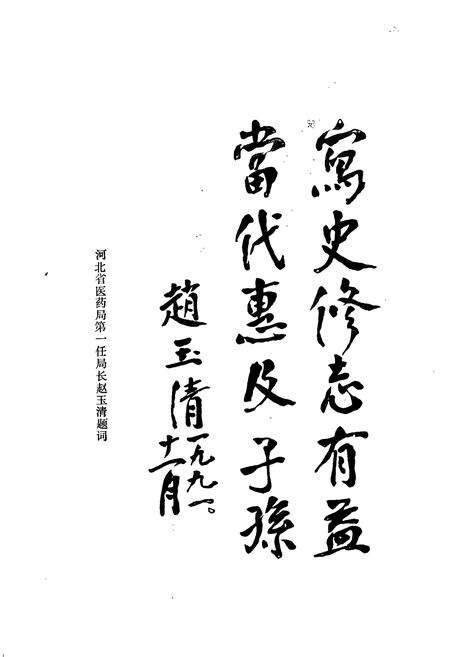 寫史修志有益
當代惠及子孫
趙玉清一九九一。
十一月
河北省医药局第一任局长赵玉清题词